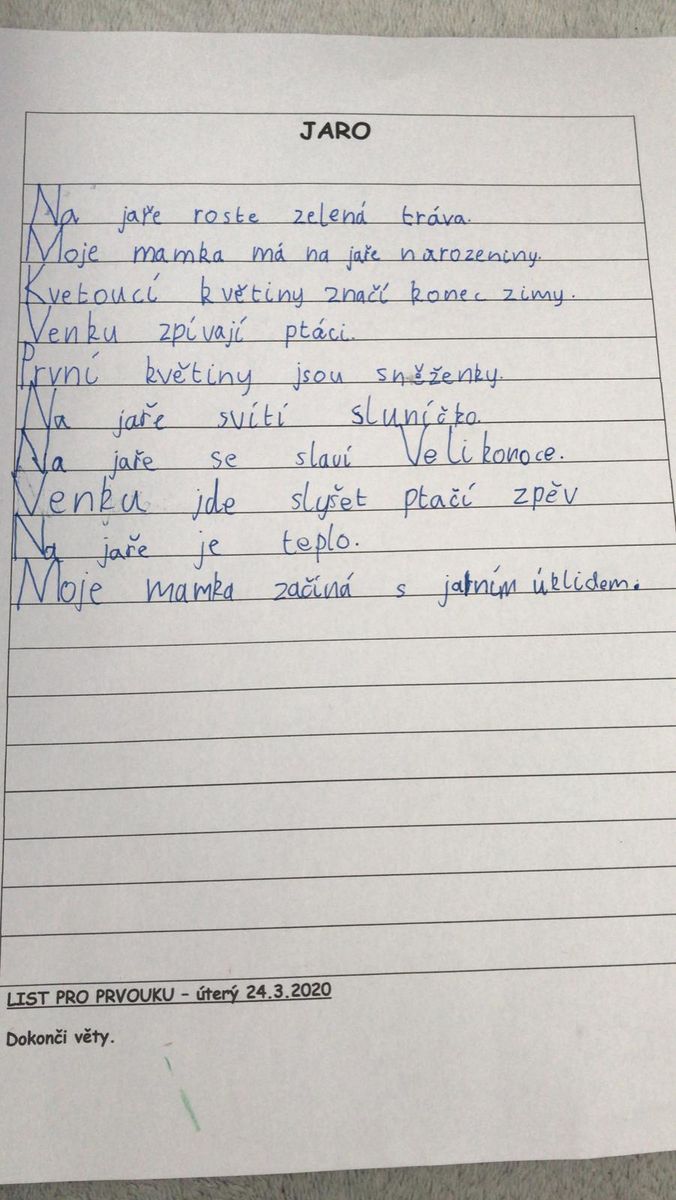 JARO
Na jaře roste zelená tráva.
Moje mamka má na jaře narozeniny.
Kvetoucí květiny značí konec zimy.
Venku zpívají ptáci.
První květiny jsou sněženky.
Na jaře svítí sluníčko.
Na jaře se slaví Velikonoce.
Venku jde slyšet ptačí zpěv
Na jaře je teplo.
Moje mamka začíná s jarním úklidem.
LIST PRO PRVOUKU – úterý 24.3.2020
Dokonči věty.